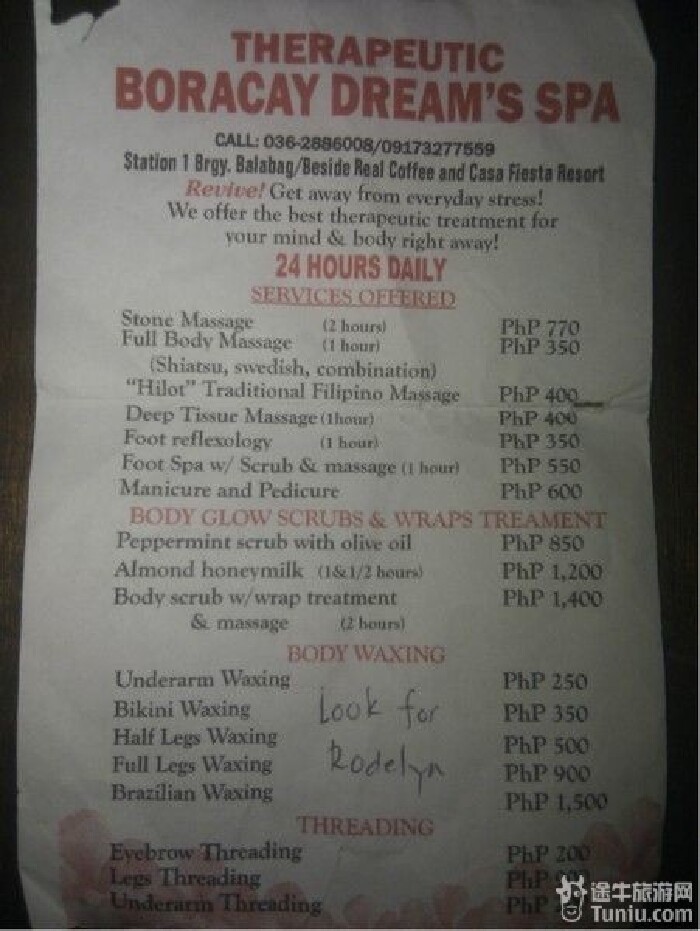 THERAPEUTIC
BORACAY DREAM'S SPA
CALL: 036-2886008/09173277559
Station 1 Brgy. Balabag/Beside Real Coffee and Casa Fiesta Resort
Revive! Get away from everyday stress!
We offer the best therapeutic treatment for
your mind & body right away!
24 HOURS DAILY
SERVICES OFFERED
Stone Massage (2 hours) PhP 770
Full Body Massage (1 hour) PhP 350
(Shiatsu, swedish, combination)
"Hilot" Traditional Filipino Massage PhP 400
Deep Tissue Massage (1hour) PhP 400
Foot reflexology (1 hour) PhP 350
Foot Spa w/ Scrub & massage (1 hour) PhP 550
Manicure and Pedicure PhP 600
BODY GLOW SCRUBS & WRAPS TREAMENT
Peppermint scrub with olive oil PhP 850
Almond honeymilk (1&1/2 hours) PhP 1,200
Body scrub w/wrap treatment PhP 1,400
& massage (2 hours)
BODY WAXING
Underarm Waxing PhP 250
Bikini Waxing PhP 350
Half Legs Waxing PhP 500
Full Legs Waxing PhP 900
Brazilian Waxing PhP 1,500
Look for
Rodelyn
THREADING
Eyebrow Threading PhP 200
Legs Threading PhP
Underarm Threading PhP
途牛旅游网
Tuniu.com